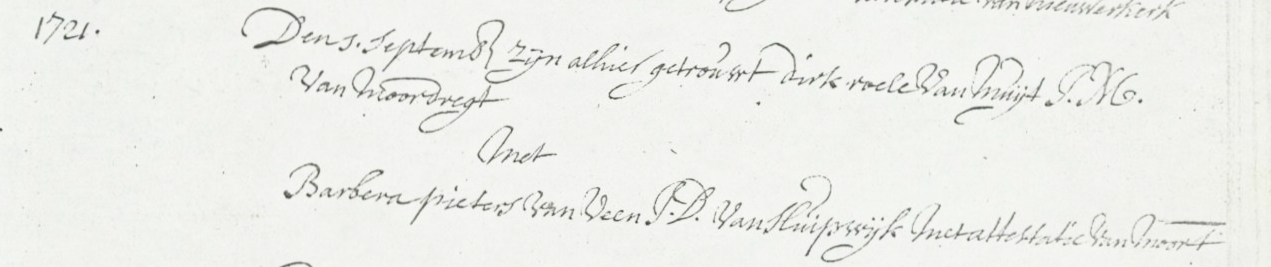 van nieuwerkerk
1721.
Den 5. Septemb zijn alhier getrouwt Dirk roele Van Muijt J.M.
Van Moordregt
Met
Barbera pieters van Veen J.D. Van Sluipwijk Met attestatie Van Moort